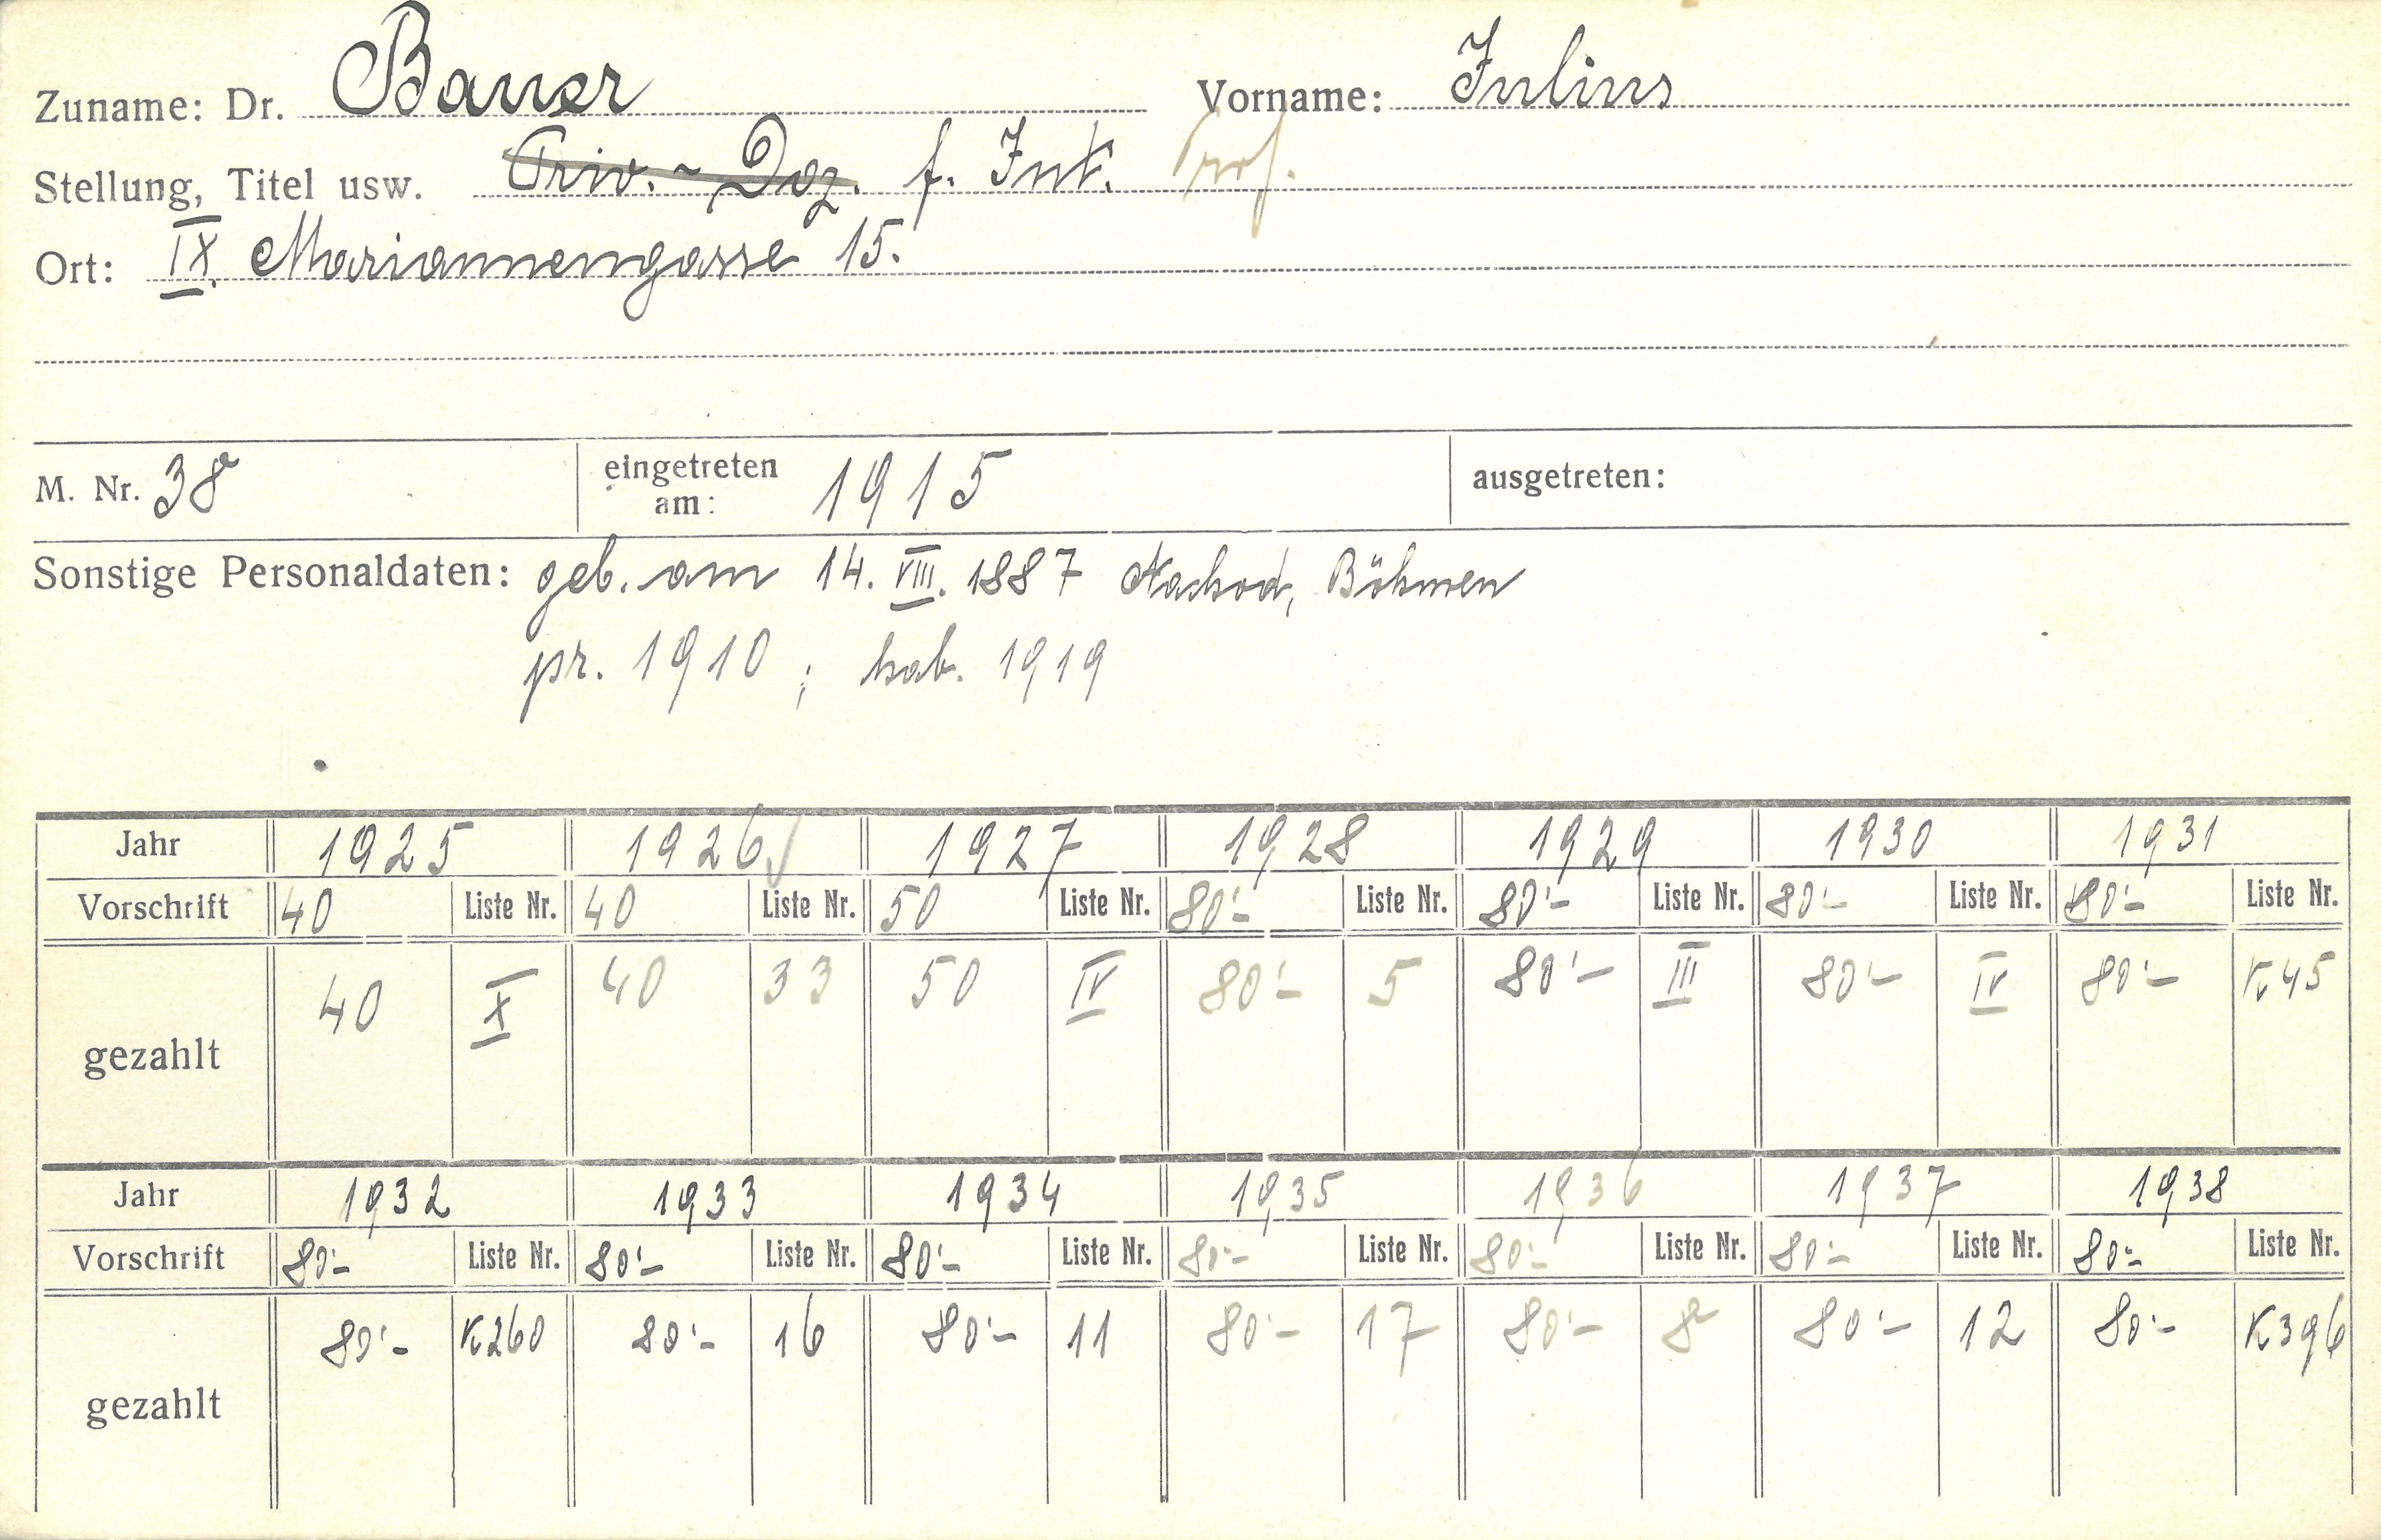 Zuname: Dr. Bauer Vorname: Julius
Stellung, Titel usw. Priv.-Doz. f. Int. Prof.
Ort: IX. Mariannengasse 15.
M. Nr. 38 eingetreten am: 1915 ausgetreten:
Sonstige Personaldaten: geb. am 14. VIII. 1887 Nachod, Böhmen
pr. 1910 ; hab. 1919
Jahr 1925 1926 1927 1928 1929 1930 1931
Vorschrift 40 Liste Nr. 40 Liste Nr. 50 Liste Nr. 80'- Liste Nr. 80'- Liste Nr. 80'- Liste Nr. 80'- Liste Nr.
gezahlt 40 X 40 33 50 IV 80'- 5 80'- III 80'- IV 80'- K45
Jahr 1932 1933 1934 1935 1936 1937 1938
Vorschrift 80'- Liste Nr. 80'- Liste Nr. 80'- Liste Nr. 80'- Liste Nr. 80'- Liste Nr. 80'- Liste Nr. 80'- Liste Nr.
gezahlt 80'- K260 80'- 16 80'- 11 80'- 17 80'- 8 80'- 12 80'- K396